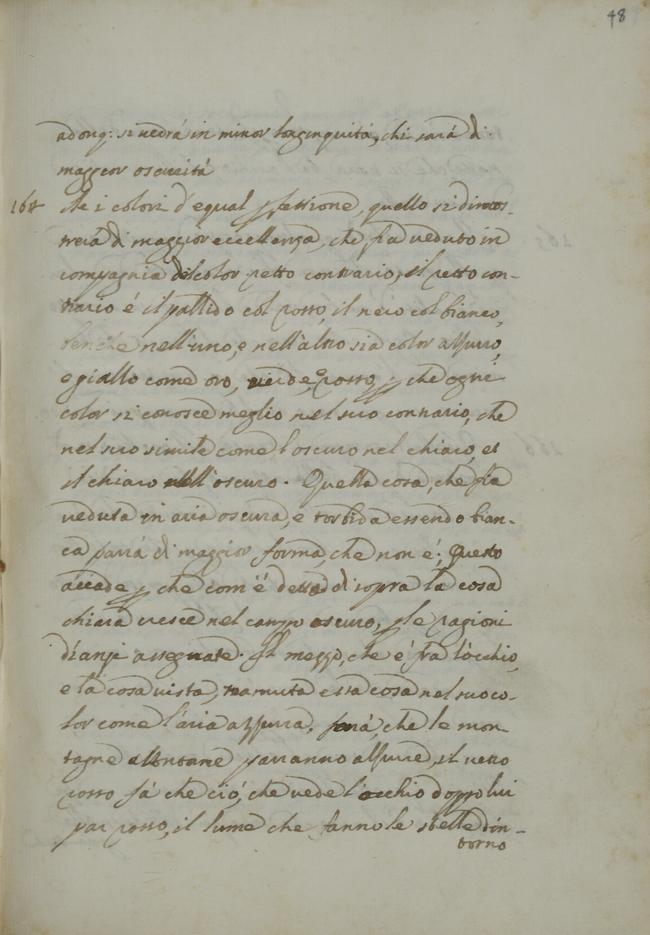 48
adonq: si vedrá in minor longinquitá, chi sará di
maggior oscuritá
168 De i colori d'equal pfettione, quello si dimos-
trerá di maggior eccellenza, che fia veduto in
compagnia del color retto contrario, il retto con-
trario é il pallido col rosso, il nero col bianco,
benche nell'uno, e nell'altro sia color azzurro,
e giallo come oro, verde, e rosso, p che ogni
color si conosce meglio nel suo contrario, che
nel suo simile come l'oscuro nel chiaro, et
il chiaro nell'oscuro. Quella cosa, che fia
veduta in aria oscura, e torbida essendo bian-
ca parrá di maggior forma, che non é; Questo
accade p che com'é detto di sopra la cosa
chiara cresce nel campo oscuro, p le ragioni
dianzi assegnate. Il mezzo, che é fra l'occhio,
e la cosa vista, tramuta essa cosa nel suo co-
lor come l'aria azzurra, fará, che le mon-
tagne lontane parranno azzure, il vetro
rosso fá che ció, che vede l'occhio doppo lui
par rosso, il lume che fanno le stelle d'in-
torno